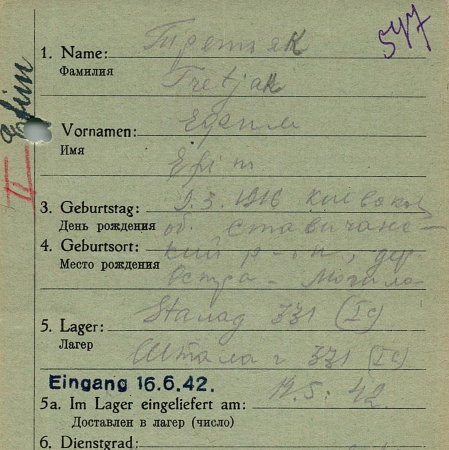 547
Efim
1. Name: Третьяк
Фамилия Tretjak
Vornamen: Ефим
Имя Efim
3. Geburtstag: 9.3.1916 киевская
День рождения об. ставичанс-
4. Geburtsort: кий р-он, дер.
Место рождения Остра-Могила
5. Lager: Stalag 331 (Ic)
Лагер Шталаг 331 (Ic)
Eingang 16.6.42.
5a. Im Lager eingeliefert am: 14.5.42.
Доставлен в лагер (число)
6. Dienstgrad: